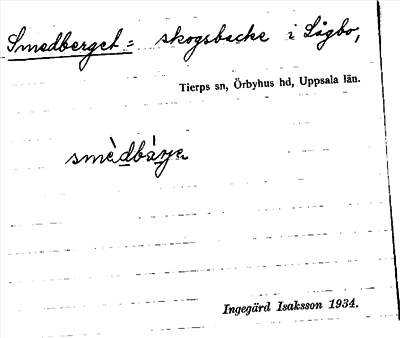 Smedberget = skogsbacke i Sågbo,
Tierps sn, Örbyhus hd, Uppsala län.
smèdbárje
Ingegärd Isaksson 1934.